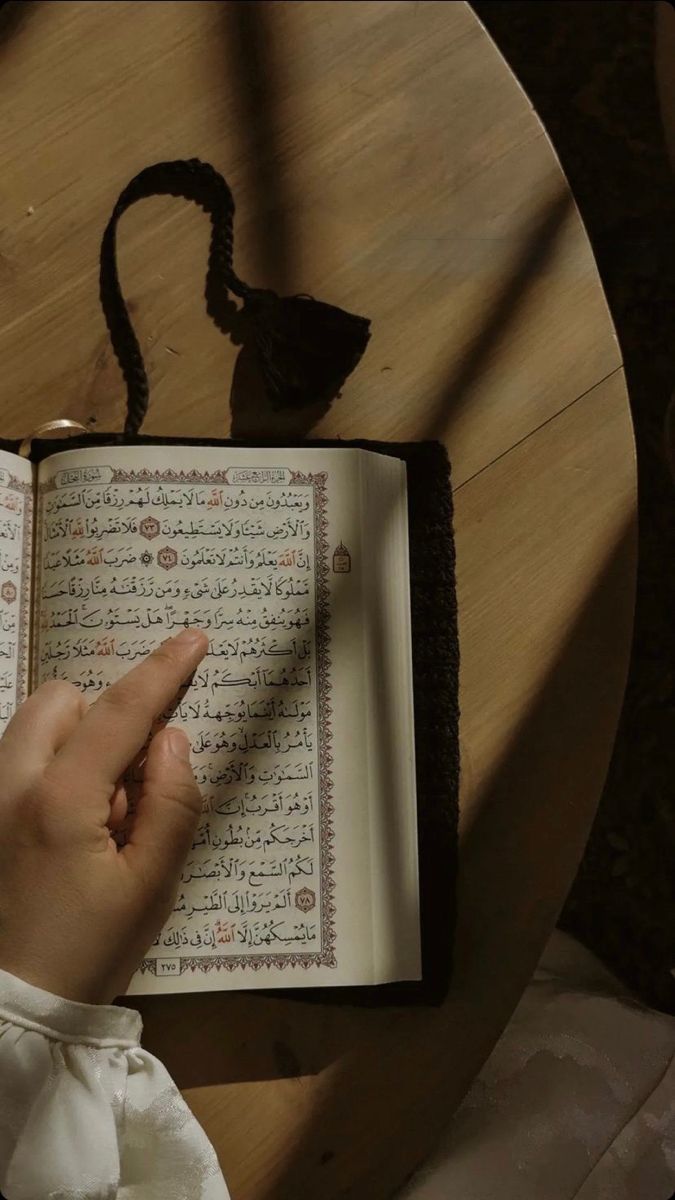 الجزء الرابع عشر
سورة النحل
وَيَعْبُدُونَ مِن دُونِ ٱللَّهِ مَا لَا يَمْلِكُ لَهُمْ رِزْقًا مِّنَ ٱلسَّمَٰوَٰتِ
وَٱلْأَرْضِ شَيْـًٔا وَلَا يَسْتَطِيعُونَ ٧٣ فَلَا تَضْرِبُوا۟ لِلَّهِ ٱلْأَمْثَالَ
إِنَّ ٱللَّهَ يَعْلَمُ وَأَنتُمْ لَا تَعْلَمُونَ ٧٤ ۞ ضَرَبَ ٱللَّهُ مَثَلًا عَبْدًا
مَّمْلُوكًا لَّا يَقْدِرُ عَلَىٰ شَىْءٍ وَمَن رَّزَقْنَٰهُ مِنَّا رِزْقًا حَسَنًا
فَهُوَ يُنفِقُ مِنْهُ سِرًّا وَجَهْرًا ۖ هَلْ يَسْتَوُۥنَ ۚ ٱلْحَمْدُ لِلَّهِ
بَلْ أَكْثَرُهُمْ لَا وَضَرَبَ ٱللَّهُ مَثَلًا رَّجُلَيْنِ
أَحَدُهُمَآ أَبْكَمُ لَا وَهُوَ
مَوْلَىٰهُ أَيْنَمَا يُوَجِّههُّ لَا يَأْتِ
يَأْمُرُ بِٱلْعَدْلِ ۙ وَهُوَ عَلَىٰ
ٱلسَّمَٰوَٰتِ وَٱلْأَرْضِ ۚ
أَوْ هُوَ أَقْرَبُ ۚ إِنَّ ٱللَّهَ
أَخْرَجَكُم مِّنۢ بُطُونِ
لَكُمُ ٱلسَّمْعَ وَٱلْأَبْصَٰرَ
٧٨ أَلَمْ يَرَوْا۟ إِلَى ٱلطَّيْرِ
مَا يُمْسِكُهُنَّ إِلَّا ٱللَّهُ ۗ إِنَّ فِى ذَٰلِكَ
٢٧٥